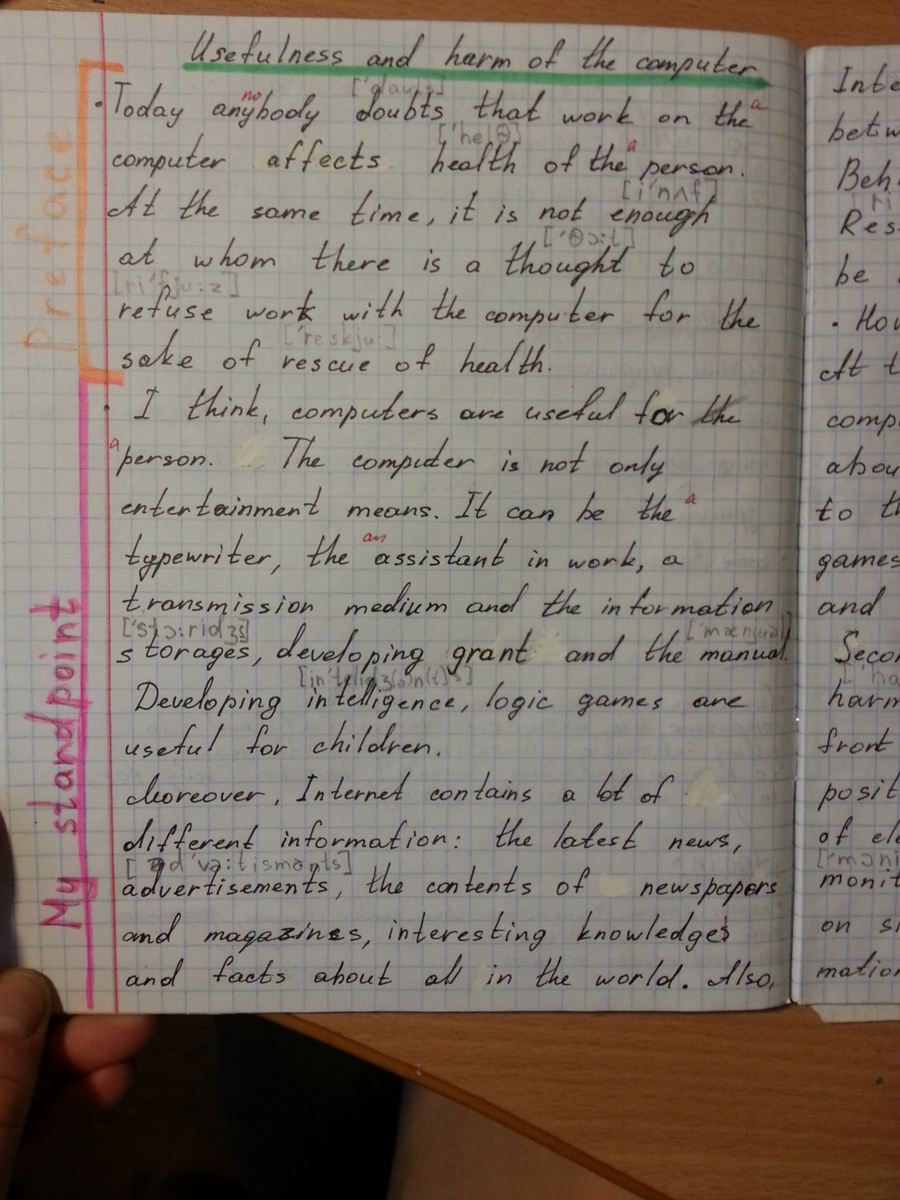 Usefulness and harm of the computer
['dauts]
no a
• Today anybody doubts that work on the
['helθ]
a
computer affects health of the person.
[i'nʌf]
At the same time, it is not enough
['θɔ:t]
at whom there is a thought to
[ri'fju:z]
refuse work with the computer for the
['reskju:]
sake of rescue of health.
• I think, computers are useful for the
a person. The computer is not only
a
entertainment means. It can be the
an
typewriter, the assistant in work, a
transmission medium and the information
['stɔ:ridʒs] ['mænjuəl]
storages, developing grant and the manual.
Developing intelligence, logic games are
useful for children.
Moreover, Internet contains a lot of
different information: the latest news,
advertisements, the contents of newspapers
and magazines, interesting knowledges
and facts about all in the world. Also,
Preface
My standpoint
Inte
betw
Beh
Res
be
• Ho
At t
comp
abou
to th
games
and
Secon
harm
front
posit
of ele
monit
on s
mation